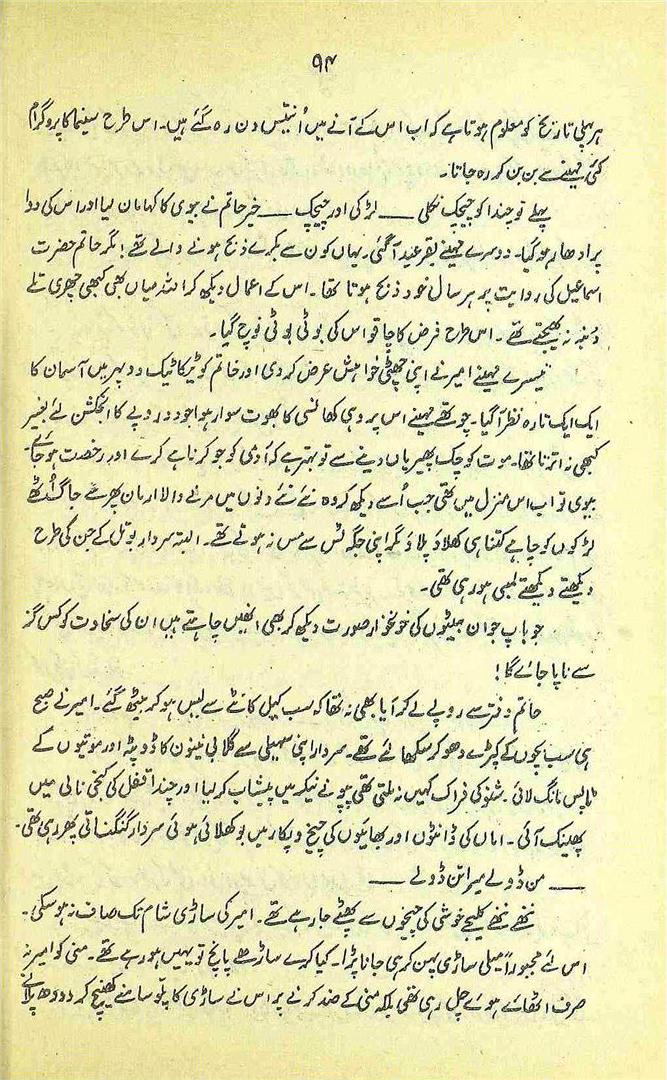 ۹۴
ہر پہلی تاریخ کو معلوم ہوتا ہے کہ اب اس کے آنے میں اُنیتیس دن رہ گئے ہیں۔ اس طرح سینما کا پروگرام
کئی مہینے سے بن بن کر رہ جاتا۔
پہلے تو چندا کو چیچک نکلی ــــ لڑکی اور چیچک ــــ خیر حاتم نے بیوی کا کہا مان لیا اور اس کی دوا
پر ادھار ہو گیا۔ دوسرے مہینے بقر عید آ گئی۔ یہاں کون سے بکرے ذبح ہونے والے تھے! مگر حاتم حضرت
اسماعیل کی روایت پر ہر سال خود ذبح ہوتا تھا۔ اس کے اعمال دیکھ کر اللہ میاں بھی کبھی چھری تلے
دُنبہ نہ بھیجتے تھے۔ اس طرح قرض کا چاقو اس کی بوٹی بوٹی نوچ گیا۔
تیسرے مہینے امیر نے اپنی چھپٹی خواہش عرض کر دی اور حاتم کو ٹیکاٹیک دوپہر میں آسمان کا
ایک ایک تارہ نظر آ گیا۔ چوتھے مہینے اس پر وہی کھانسی کا بھوت سوار ہوا جو دو روپے کا انجکشن لئے بغیر
کبھی نہ اترتا تھا۔ موت کو چک پھیریاں دینے سے تو بہتر ہے کہ آدمی کو جو کرنا ہے کرے اور رخصت ہو جائے۔
بیوی تو اب اس منزل میں تھی جب اُسے دیکھ کر وہ نئے نئے دنوں میں مرنے والا ارمان پھر سے جاگ اُٹھے
لڑکوں کو چاہے کتنا ہی کھلاؤ پلاؤ مگر اپنی جگہ ٹس سے مس نہ ہوتے تھے۔ البتہ سردار بوتل کے جن کی طرح
دیکھتے دیکھتے لمبی ہو رہی تھی۔
جو باپ جوان بیٹیوں کی خونخوار صورت دیکھ کر بھی انھیں چاہتے ہیں ان کی سخاوت کو کس گز
سے ناپا جائے گا!
حاتم دفتر سے روپے لے کر آیا بھی نہ تھا کہ سب کیل کانٹے سے لیس ہو کر بیٹھ گئے۔ امیر نے صبح
ہی سب بچوں کے کپڑے دھو کر سکھائے تھے۔ سردار اپنی سہیلی سے گلابی نینون کا ڈوپٹہ اور موتیوں کے
ٹاپس مانگ لائی۔ شنو کی فراک کہیں نہ ملتی تھی پپو نے نیکر میں پیشاب کر لیا اور چندا قفل کی کنجی نالی میں
پھینک آئی۔ اماں کی ڈانٹوں اور بھائیوں کی چیخ و پکار میں بوکھلائی ہوئی سردار گنگناتی پھر رہی تھی۔
ــــ من ڈولے میرا تن ڈولے ــــ
ننھے ننھے کلیجے خوشی کی چیخوں سے پھٹے جا رہے تھے۔ امیر کی ساڑی شام تک صاف نہ ہو سکی۔
اس لئے مجبوراً میلی ساڑی پہن کر ہی جانا پڑا۔ کیا کرے ساڑھے پانچ تو یہیں ہو رہے تھے۔ منی کو امیر نہ
صرف اٹھائے ہوئے چل رہی تھی بلکہ منی کے ضد کرنے پر اس نے ساڑی کا پلّو سامنے کھینچ کر دودھ پلانے